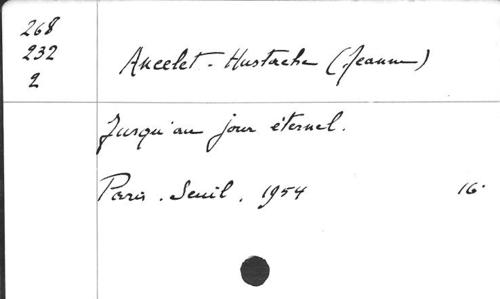 268
232
2
Ancelet-Hustache (Jeanne)
Jusqu'au jour éternel.
Paris. Seuil. 1954 16°